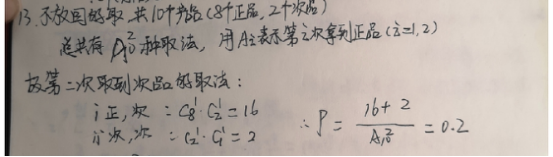 13. 不放回的取, 共10个产品 (8个正品, 2个次品)
总共有 A₁₀² 种取法, 用Ai表示第i次拿到正品 (i=1,2)
故第二次取到次品的取法:
i 正, 次 : C₈¹·C₂¹ = 16
ii 次, 次 : C₂¹·C₁¹ = 2 ∴ P = (16+2)/A₁₀² = 0.2